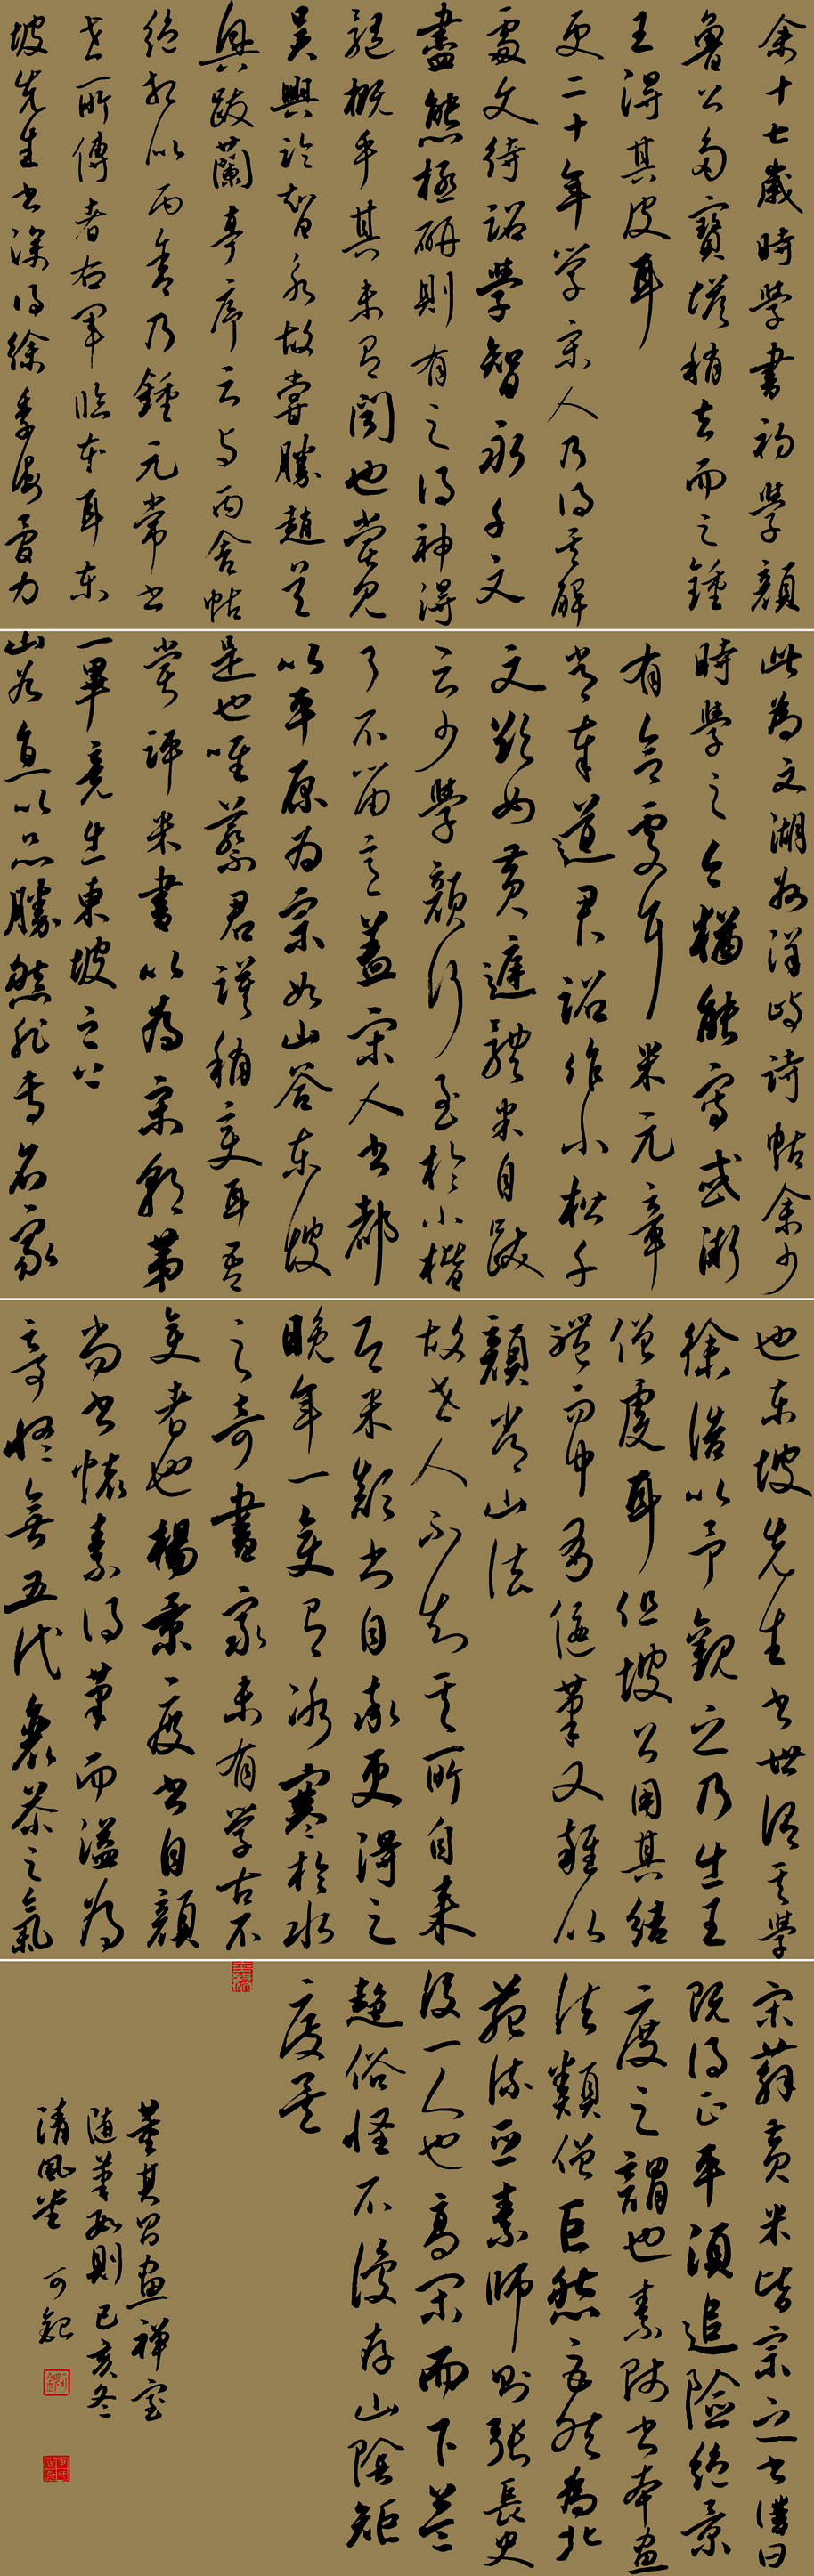 余十七歲時學書初學顏
魯公多寶塔稍去而之鍾
王得其皮耳
更二十年學宋人乃得其解
處文待詔學智永千文
盡態極妍則有之得神得
髓概乎其未有聞也嘗見
吳興論智永故當勝趙吳
興跋蘭亭序云與丙舍帖
絕相似丙舍乃鍾元常書
世所傳者右軍臨本耳東
坡先生書深得徐季海骨力
此為文湖州洋嶼詩帖余少
時學之今猶能寫或漸
有合處耳米元章
嘗奉道君詔作小楷千
文欲如黃庭體米自跋
云少學顏行至於小楷
了不留意蓋宋人書都
以平原為宗如山谷東坡
是也唯蔡君謨稍變耳吾
嘗評米書以為宋朝第
一畢竟出東坡之上
山谷直以品勝然非專名家
也東坡先生書世謂其學
徐浩以予觀之乃出王
僧虔耳但坡公用其結
體而中有偃筆又雜以
顏常山法
故世人不知其所自來
即米顛書自率更得之
晚年一變有冰寒於水
之奇書家未有學古不
變者也楊景度書自顏
尚書懷素得筆而溢為
奇怪無五代衰茶之氣
宋蘇黃米皆宗之書譜曰
既得正平須追險絕景
度之謂也素師書本畫
法類僧巨然巨然為北
苑流亞素師則張長史
後一人也高閑而下益
趨俗怪不復存山陰矩
度矣
董其昌畫禪室
隨筆數則己亥冬
清風堂 可韶